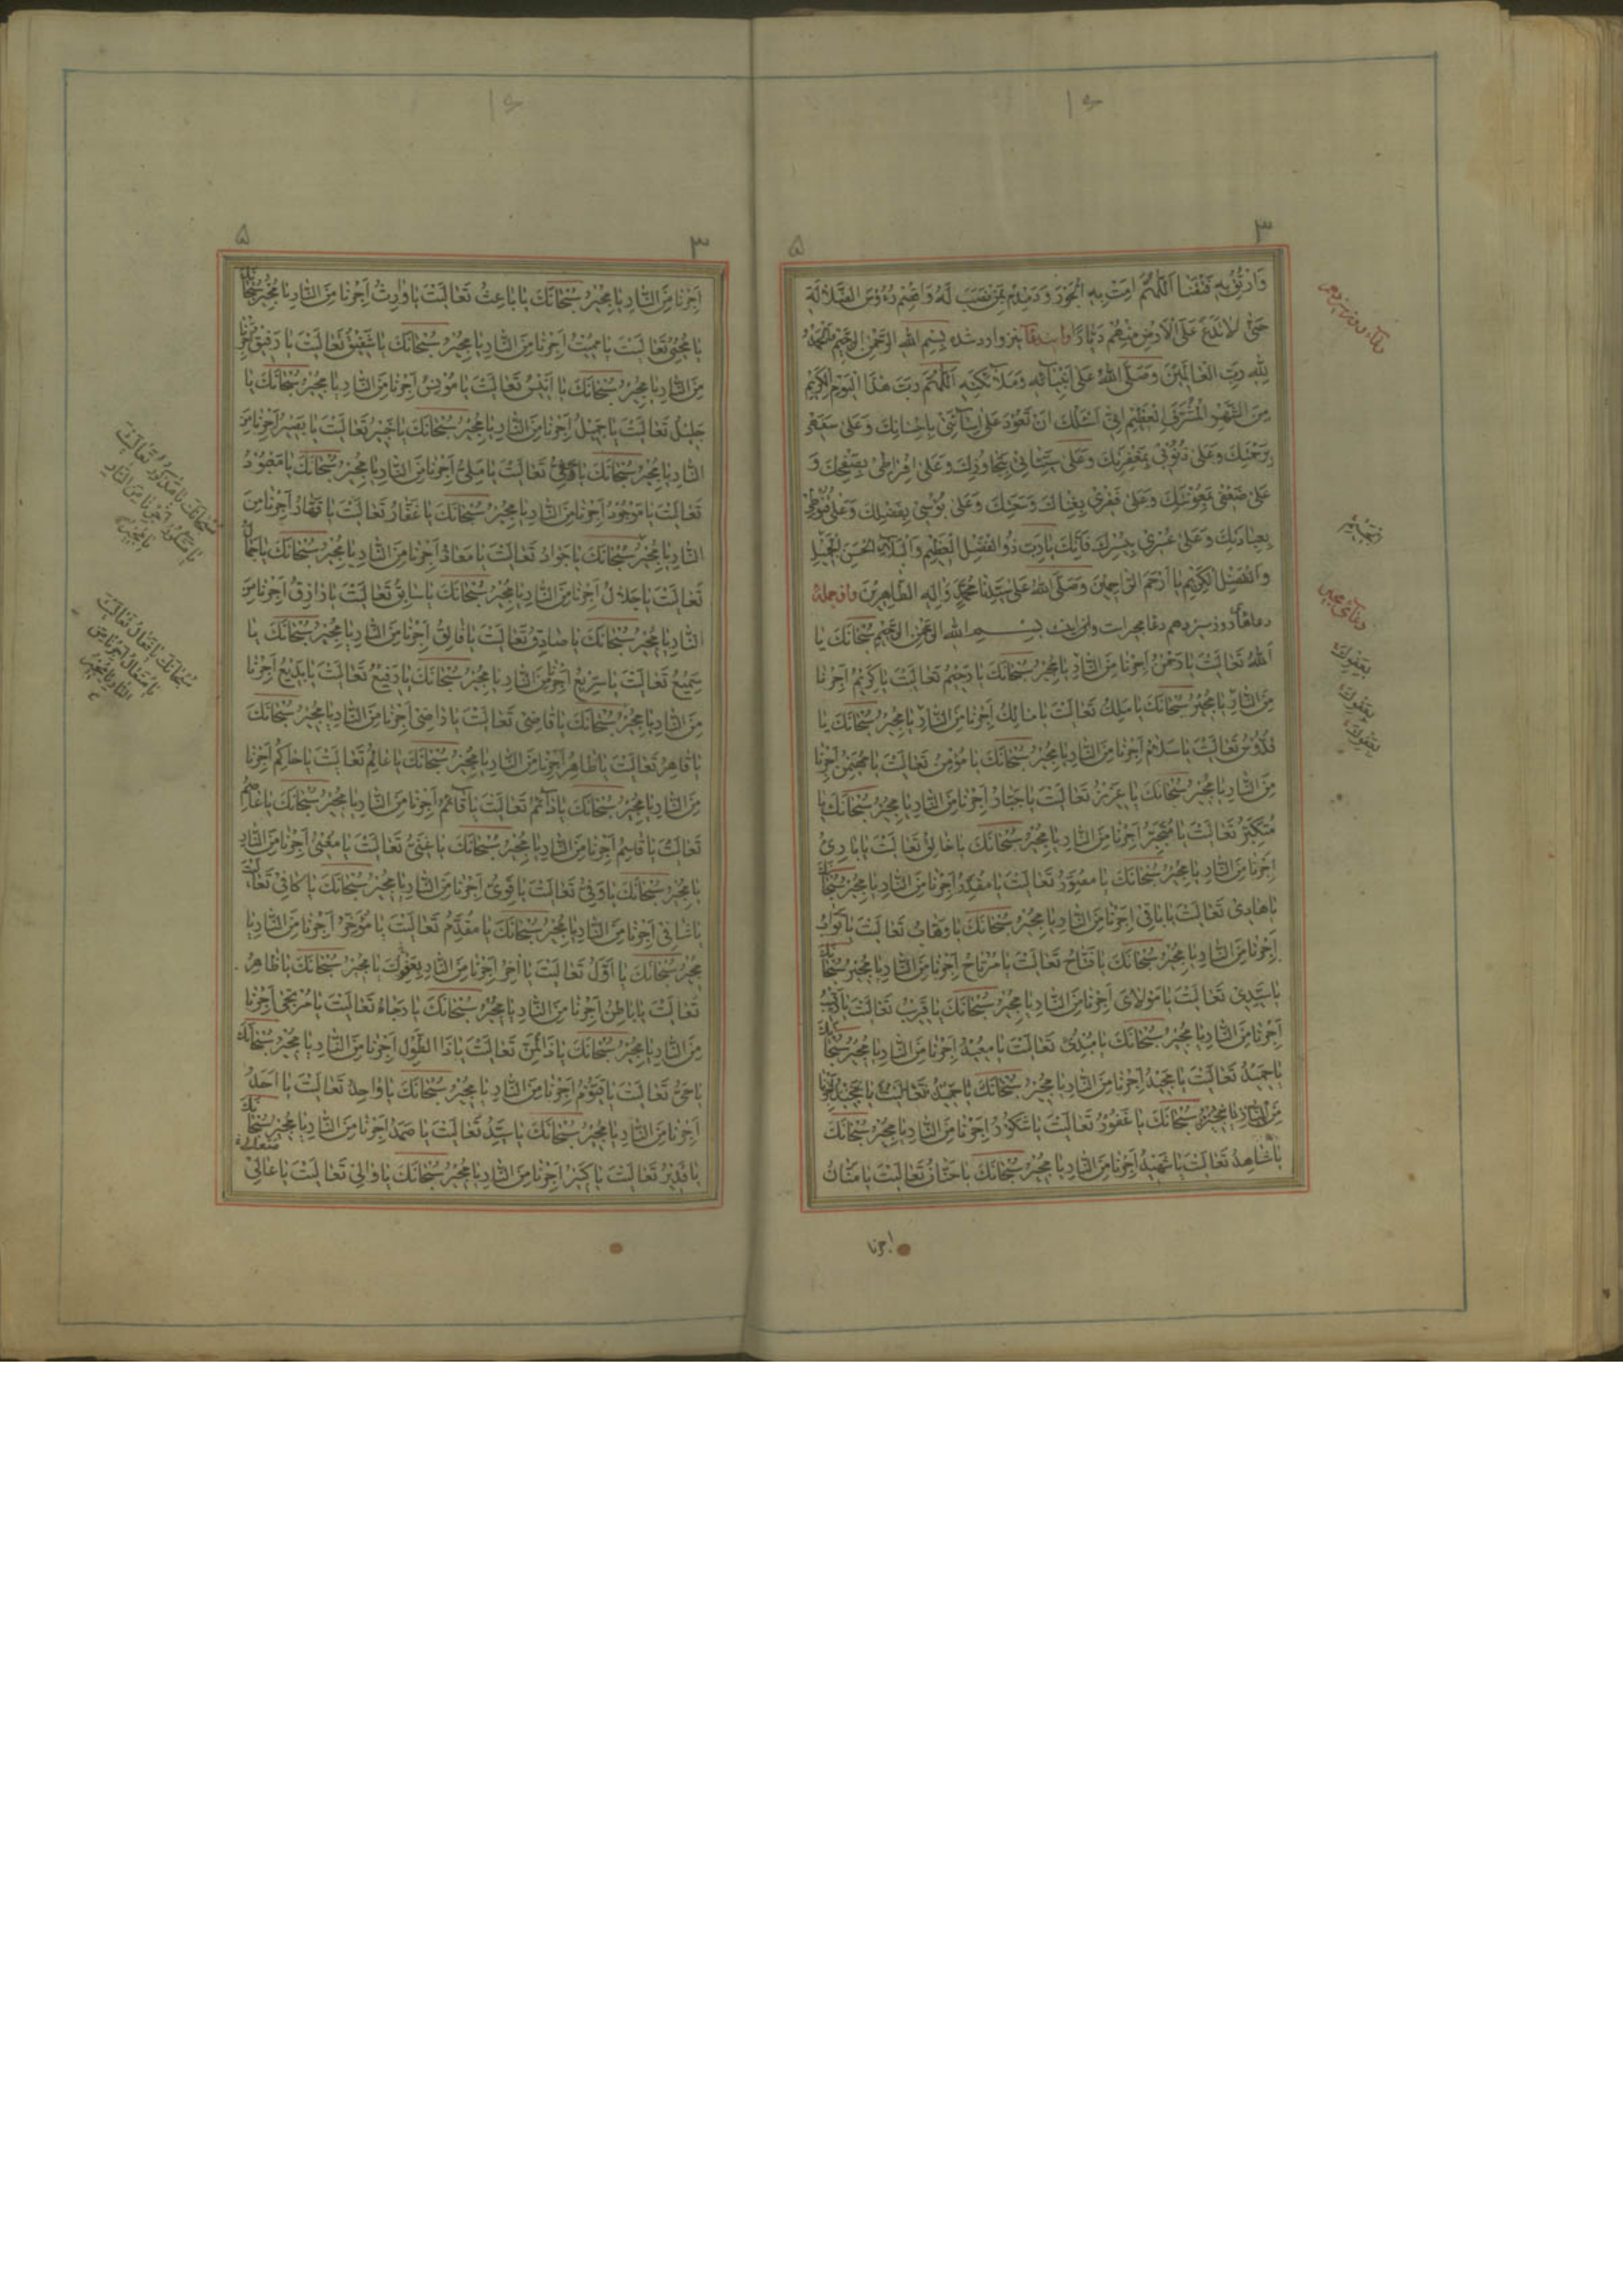 وَارْتُقْ بِهِ فَتْقَنَا اَللّٰهُمَّ اَمِتْ بِهِ الْجَوْرَ وَدَمْدِمْ بِمَنْ نَصَبَ لَهُ وَاقْصِمْ رُؤُوسَ الضَّلَالَةِ
حَتّٰى لَا تَدَعَ عَلَى الْاَرْضِ مِنْهُمْ دَيَّارًا نیز وارد شده بِسْمِ اللهِ الرَّحْمٰنِ الرَّحِيْمِ اَلْحَمْدُ
لِلّٰهِ رَبِّ الْعَالَمِيْنَ وَصَلَّى اللهُ عَلٰى اَنْبِيَآئِهِ وَمَلَآئِكَتِهِ اَللّٰهُمَّ رَبَّ هٰذَا الْيَوْمِ الْكَرِيْمِ
مِنَ الشَّهْرِ الْمُشَرَّفِ الْعَظِيْمِ اِنِّيْ اَسْئَلُكَ اَنْ تَعُوْدَ عَلٰى اِسَآئَتِيْ بِاِحْسَانِكَ وَعَلٰى
بِرَحْمَتِكَ وَعَلٰى ذُنُوْبِيْ بِمَغْفِرَتِكَ وَعَلٰى سَيِّئَاتِيْ بِتَجَاوُزِكَ وَعَلٰى اِفْرَاطِيْ بِصَفْحِكَ وَ
عَلٰى ضَعْفِيْ بِمَعُوْنَتِكَ وَعَلٰى فَقْرِيْ بِغِنَاكَ وَسَعَتِكَ وَعَلٰى بُؤْسِيْ بِفَضْلِكَ وَعَلٰى قُنُوْطِيْ
وَعَلٰى عُسْرِيْ بِيُسْرِكَ فَاِنَّكَ يَا رَبِّ ذُو الْفَضْلِ الْعَظِيْمِ وَالْبَلَآءِ الْحَسَنِ الْجَمِيْلِ
وَالْفَضْلِ الْكَرِيْمِ يَا اَرْحَمَ الرَّاحِمِيْنَ وَصَلَّى اللهُ عَلٰى سَيِّدِنَا مُحَمَّدٍ وَاٰلِهِ الطَّاهِرِيْنَ واز جملهٔ
دعاهای روز سیزدهم دعا مجیر است واین است بِسْمِ اللهِ الرَّحْمٰنِ الرَّحِيْمِ سُبْحَانَكَ يَا
اَللهُ تَعَالَيْتَ يَا رَحْمٰنُ اَجِرْنَا مِنَ النَّارِ يَا مُجِيْرُ سُبْحَانَكَ يَا رَحِيْمُ تَعَالَيْتَ يَا كَرِيْمُ اَجِرْنَا
مِنَ النَّارِ يَا مُجِيْرُ سُبْحَانَكَ يَا مَلِكُ تَعَالَيْتَ يَا مَالِكُ اَجِرْنَا مِنَ النَّارِ يَا مُجِيْرُ سُبْحَانَكَ يَا
قُدُّوْسُ تَعَالَيْتَ يَا سَلَامُ اَجِرْنَا مِنَ النَّارِ يَا مُجِيْرُ سُبْحَانَكَ يَا مُؤْمِنُ تَعَالَيْتَ يَا مُهَيْمِنُ اَجِرْنَا
مِنَ النَّارِ يَا مُجِيْرُ سُبْحَانَكَ يَا عَزِيْزُ تَعَالَيْتَ يَا جَبَّارُ اَجِرْنَا مِنَ النَّارِ يَا مُجِيْرُ سُبْحَانَكَ يَا
مُتَكَبِّرُ تَعَالَيْتَ يَا مُتَجَبِّرُ اَجِرْنَا مِنَ النَّارِ يَا مُجِيْرُ سُبْحَانَكَ يَا خَالِقُ تَعَالَيْتَ يَا بَارِئُ
اَجِرْنَا مِنَ النَّارِ يَا مُجِيْرُ سُبْحَانَكَ يَا مُصَوِّرُ تَعَالَيْتَ يَا مُقَدِّرُ اَجِرْنَا مِنَ النَّارِ يَا مُجِيْرُ سُبْحَانَكَ
يَا هَادِيْ تَعَالَيْتَ يَا بَاقِيْ اَجِرْنَا مِنَ النَّارِ يَا مُجِيْرُ سُبْحَانَكَ يَا وَهَّابُ تَعَالَيْتَ يَا تَوَّابُ
اَجِرْنَا مِنَ النَّارِ يَا مُجِيْرُ سُبْحَانَكَ يَا فَتَّاحُ تَعَالَيْتَ يَا مُرْتَاحُ اَجِرْنَا مِنَ النَّارِ يَا مُجِيْرُ سُبْحَانَكَ
يَا سَيِّدِيْ تَعَالَيْتَ يَا مَوْلَايَ اَجِرْنَا مِنَ النَّارِ يَا مُجِيْرُ سُبْحَانَكَ يَا قَرِيْبُ تَعَالَيْتَ يَا رَقِيْبُ
اَجِرْنَا مِنَ النَّارِ يَا مُجِيْرُ سُبْحَانَكَ يَا مُبْدِئُ تَعَالَيْتَ يَا مُعِيْدُ اَجِرْنَا مِنَ النَّارِ يَا مُجِيْرُ سُبْحَانَكَ
يَا حَمِيْدُ تَعَالَيْتَ يَا مَجِيْدُ اَجِرْنَا مِنَ النَّارِ يَا مُجِيْرُ سُبْحَانَكَ
مِنَ النَّارِ يَا مُجِيْرُ سُبْحَانَكَ يَا غَفُوْرُ تَعَالَيْتَ يَا شَكُوْرُ اَجِرْنَا مِنَ النَّارِ يَا مُجِيْرُ سُبْحَانَكَ
يَا شَاهِدُ تَعَالَيْتَ يَا شَهِيْدُ اَجِرْنَا مِنَ النَّارِ يَا مُجِيْرُ سُبْحَانَكَ يَا حَنَّانُ تَعَالَيْتَ يَا مَنَّانُ
اجرنا
دعای مجیر
بعفوك
بعفوك
بعفوك
٣
٥
اَجِرْنَا مِنَ النَّارِ يَا مُجِيْرُ سُبْحَانَكَ يَا بَاعِثُ تَعَالَيْتَ يَا وَارِثُ اَجِرْنَا مِنَ النَّارِ يَا مُجِيْرُ سُبْحَانَكَ
يَا مُحْيِيْ تَعَالَيْتَ يَا مُمِيْتُ اَجِرْنَا مِنَ النَّارِ يَا مُجِيْرُ سُبْحَانَكَ يَا شَفِيْقُ تَعَالَيْتَ يَا رَفِيْقُ اَجِرْنَا
مِنَ النَّارِ يَا مُجِيْرُ سُبْحَانَكَ يَا اَنِيْسُ تَعَالَيْتَ يَا مُؤْنِسُ اَجِرْنَا مِنَ النَّارِ يَا مُجِيْرُ سُبْحَانَكَ يَا
جَلِيْلُ تَعَالَيْتَ يَا جَمِيْلُ اَجِرْنَا مِنَ النَّارِ يَا مُجِيْرُ سُبْحَانَكَ يَا خَبِيْرُ تَعَالَيْتَ يَا بَصِيْرُ اَجِرْنَا مِنَ
النَّارِ يَا مُجِيْرُ سُبْحَانَكَ يَا تَعَالَيْتَ يَا مَلِيُّ اَجِرْنَا مِنَ النَّارِ يَا مُجِيْرُ سُبْحَانَكَ يَا مَعْبُوْدُ
تَعَالَيْتَ يَا مَوْجُوْدُ اَجِرْنَا مِنَ النَّارِ يَا مُجِيْرُ سُبْحَانَكَ يَا غَفَّارُ تَعَالَيْتَ يَا قَهَّارُ اَجِرْنَا مِنَ
النَّارِ يَا مُجِيْرُ سُبْحَانَكَ يَا جَوَادُ تَعَالَيْتَ يَا مَعَاذُ اَجِرْنَا مِنَ النَّارِ يَا مُجِيْرُ سُبْحَانَكَ يَا جَمَالُ
تَعَالَيْتَ يَا جَلَالُ اَجِرْنَا مِنَ النَّارِ يَا مُجِيْرُ سُبْحَانَكَ يَا سَابِقُ تَعَالَيْتَ يَا رَازِقُ اَجِرْنَا مِنَ
النَّارِ يَا مُجِيْرُ سُبْحَانَكَ يَا صَادِقُ تَعَالَيْتَ يَا فَالِقُ اَجِرْنَا مِنَ النَّارِ يَا مُجِيْرُ سُبْحَانَكَ يَا
سَمِيْعُ تَعَالَيْتَ يَا سَرِيْعُ اَجِرْنَا مِنَ النَّارِ يَا مُجِيْرُ سُبْحَانَكَ يَا رَفِيْعُ تَعَالَيْتَ يَا بَدِيْعُ اَجِرْنَا
مِنَ النَّارِ يَا مُجِيْرُ سُبْحَانَكَ يَا قَاضِيْ تَعَالَيْتَ يَا رَاضِيْ اَجِرْنَا مِنَ النَّارِ يَا مُجِيْرُ سُبْحَانَكَ
يَا قَاهِرُ تَعَالَيْتَ يَا طَاهِرُ اَجِرْنَا مِنَ النَّارِ يَا مُجِيْرُ سُبْحَانَكَ يَا عَالِمُ تَعَالَيْتَ يَا حَاكِمُ اَجِرْنَا
مِنَ النَّارِ يَا مُجِيْرُ سُبْحَانَكَ يَا دَآئِمُ تَعَالَيْتَ يَا قَآئِمُ اَجِرْنَا مِنَ النَّارِ يَا مُجِيْرُ سُبْحَانَكَ يَا عَاصِمُ
تَعَالَيْتَ يَا قَاسِمُ اَجِرْنَا مِنَ النَّارِ يَا مُجِيْرُ سُبْحَانَكَ يَا غَنِيُّ تَعَالَيْتَ يَا مُغْنِيْ اَجِرْنَا مِنَ النَّارِ
يَا مُجِيْرُ سُبْحَانَكَ يَا وَفِيُّ تَعَالَيْتَ يَا قَوِيُّ اَجِرْنَا مِنَ النَّارِ يَا مُجِيْرُ سُبْحَانَكَ يَا كَافِيْ تَعَالَيْتَ
يَا شَافِيْ اَجِرْنَا مِنَ النَّارِ يَا مُجِيْرُ سُبْحَانَكَ يَا مُقَدِّمُ تَعَالَيْتَ يَا مُؤَخِّرُ اَجِرْنَا مِنَ النَّارِ يَا
مُجِيْرُ سُبْحَانَكَ يَا اَوَّلُ تَعَالَيْتَ يَا اٰخِرُ اَجِرْنَا مِنَ النَّارِ بِعَفْوِكَ يَا مُجِيْرُ سُبْحَانَكَ يَا ظَاهِرُ
تَعَالَيْتَ يَا بَاطِنُ اَجِرْنَا مِنَ النَّارِ يَا مُجِيْرُ سُبْحَانَكَ يَا رَجَاءُ تَعَالَيْتَ يَا مُرْتَجٰى اَجِرْنَا
مِنَ النَّارِ يَا مُجِيْرُ سُبْحَانَكَ يَا ذَا الْمَنِّ تَعَالَيْتَ يَا ذَا الطَّوْلِ اَجِرْنَا مِنَ النَّارِ يَا مُجِيْرُ سُبْحَانَكَ
يَا حَيُّ تَعَالَيْتَ يَا قَيُّوْمُ اَجِرْنَا مِنَ النَّارِ يَا مُجِيْرُ سُبْحَانَكَ يَا وَاحِدُ تَعَالَيْتَ يَا اَحَدُ
اَجِرْنَا مِنَ النَّارِ يَا مُجِيْرُ سُبْحَانَكَ يَا سَيِّدُ تَعَالَيْتَ يَا صَمَدُ اَجِرْنَا مِنَ النَّارِ يَا مُجِيْرُ سُبْحَانَكَ
يَا قَدِيْرُ تَعَالَيْتَ يَا كَبِيْرُ اَجِرْنَا مِنَ النَّارِ يَا مُجِيْرُ سُبْحَانَكَ يَا وَالِيْ تَعَالَيْتَ يَا عَالِيْ
سُبْحَانَكَ يَا مَذْكُوْرُ تَعَالَيْتَ
يَا مَشْكُوْرُ اَجِرْنَا مِنَ النَّارِ
يَا مُجِيْرُ
سُبْحَانَكَ يَا تَعَالَيْتَ
اَجِرْنَا مِنَ
النَّارِ يَا مُجِيْرُ